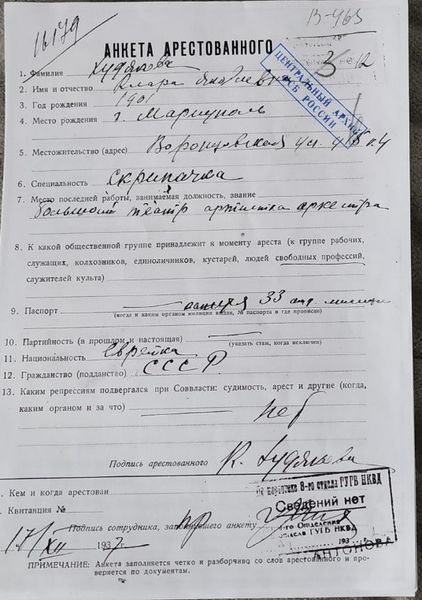 16179
В-465
АНКЕТА АРЕСТОВАННОГО
ЦЕНТРАЛЬНЫЙ АРХИВ
ФСБ РОССИИ
1. Фамилия Худякова
2. Имя и отчество Клара Яковлевна
3. Год рождения 1901
4. Место рождения г. Мариуполь
5. Местожительство (адрес) Воронцовская ул.
6. Специальность Скрипачка
7. Место последней работы, занимаемая должность, звание
Большой театр артистка оркестра
8. К какой общественной группе принадлежит к моменту ареста (к группе рабочих,
служащих, колхозников, единоличников, кустарей, людей свободных профессий,
служителей культа)
9. Паспорт 33 отд. милиции
(когда и каким органом милиции выдан, № паспорта и где прописан)
10. Партийность (в прошлом и настоящая)
(указать стаж, когда исключен)
11. Национальность еврейка
12. Гражданство (подданство) СССР
13. Каким репрессиям подвергался при Соввласти: судимость, арест и другие (когда,
каким органом и за что) нет
Подпись арестованного К. Худякова
1. Кем и когда арестован
2. Квитанция №
Подпись сотрудника, заполнившего анкету
17/XII 1937 г.
8-го отдела ГУГБ НКВД
Сведений нет
Отделения
отдела ГУГБ НКВД
193
АНТОНОВА
ПРИМЕЧАНИЕ: Анкета заполняется четко и разборчиво со слов арестованного и про-
веряется по документам.